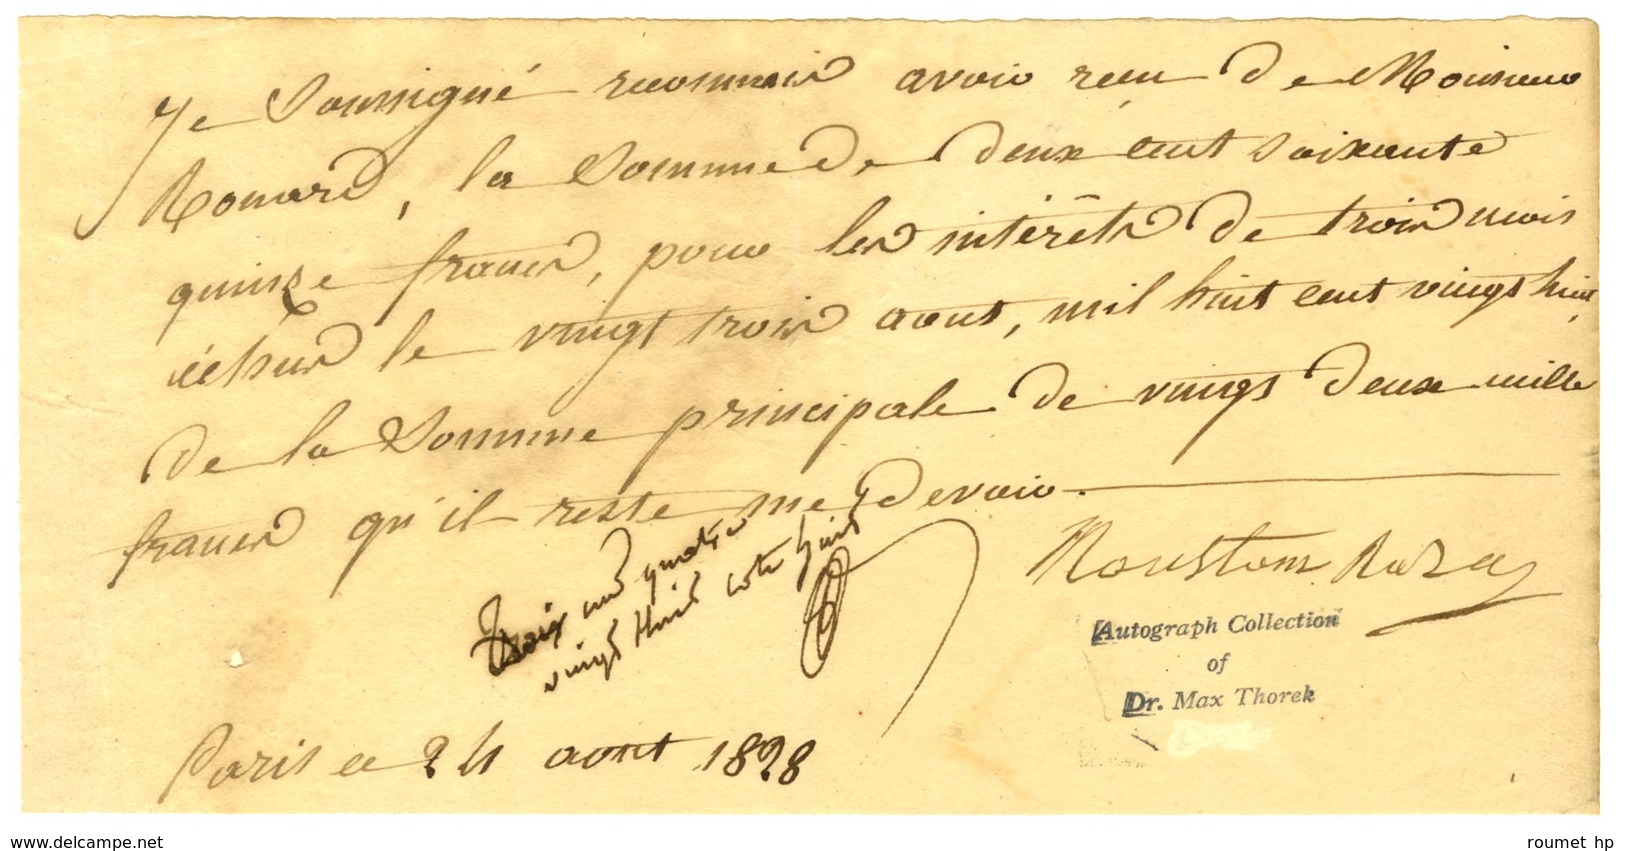 Je Soussigné reconnais avoir recu de Monsieur
Rouard, la Somme de deux cent soixante
quinze francs, pour les intérêts de trois mois
échus le vingt trois aout, mil huit cent vingt huit,
de la Somme principale de vingt deux mille
francs qu'il reste me devoir.
vingt huit
Roustam Raza
Autograph Collection
of
Dr. Max Thorek
Paris ce 24 aout 1828
www.delcampe.net
roumet hp